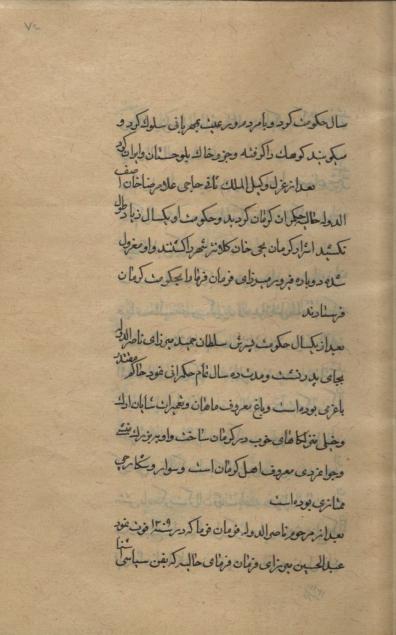 سال حکومت کرد و با مردم و رعیت بمهربانی سلوک کرد و
میگویند کوهک را گرفته و جزو خاک بلوچستان و ایران کرد
بعد از عزل وکیل الملک ثانی حاجی غلامرضا خان آصف
الدوله حکمران کرمان گردید و حکومت او یکسال زیاد طول
نکشید اشرار کرمان یحیی خان کلانتر شهر را کشتند و او معزول
شده دوباره فیروز میرزای فرمان فرما را بحکومت کرمان
فرستادند
بعد از یکسال حکومت پسرش سلطان حمید میرزای ناصر الدوله
بجای پدر نشست و مدت ده سال تمام حکمرانی نمود حاکم مقتدر
با عزمی بوده است و باغ معروف ماهان و تعمیرات شایان ارک
و خیلی بناهای خوب در کرمان ساخت و او ببزرگ منشی
و جوانمردی معروف اهل کرمان است و سوار و شکارچی
ممتازی بوده است
بعد از مرحوم ناصر الدوله فرمان فرما که در سنه ۱۳۰۹ فوت نمود
عبدالحسین میرزای فرمان فرمای حالیه که بفن سیاسی آشنا